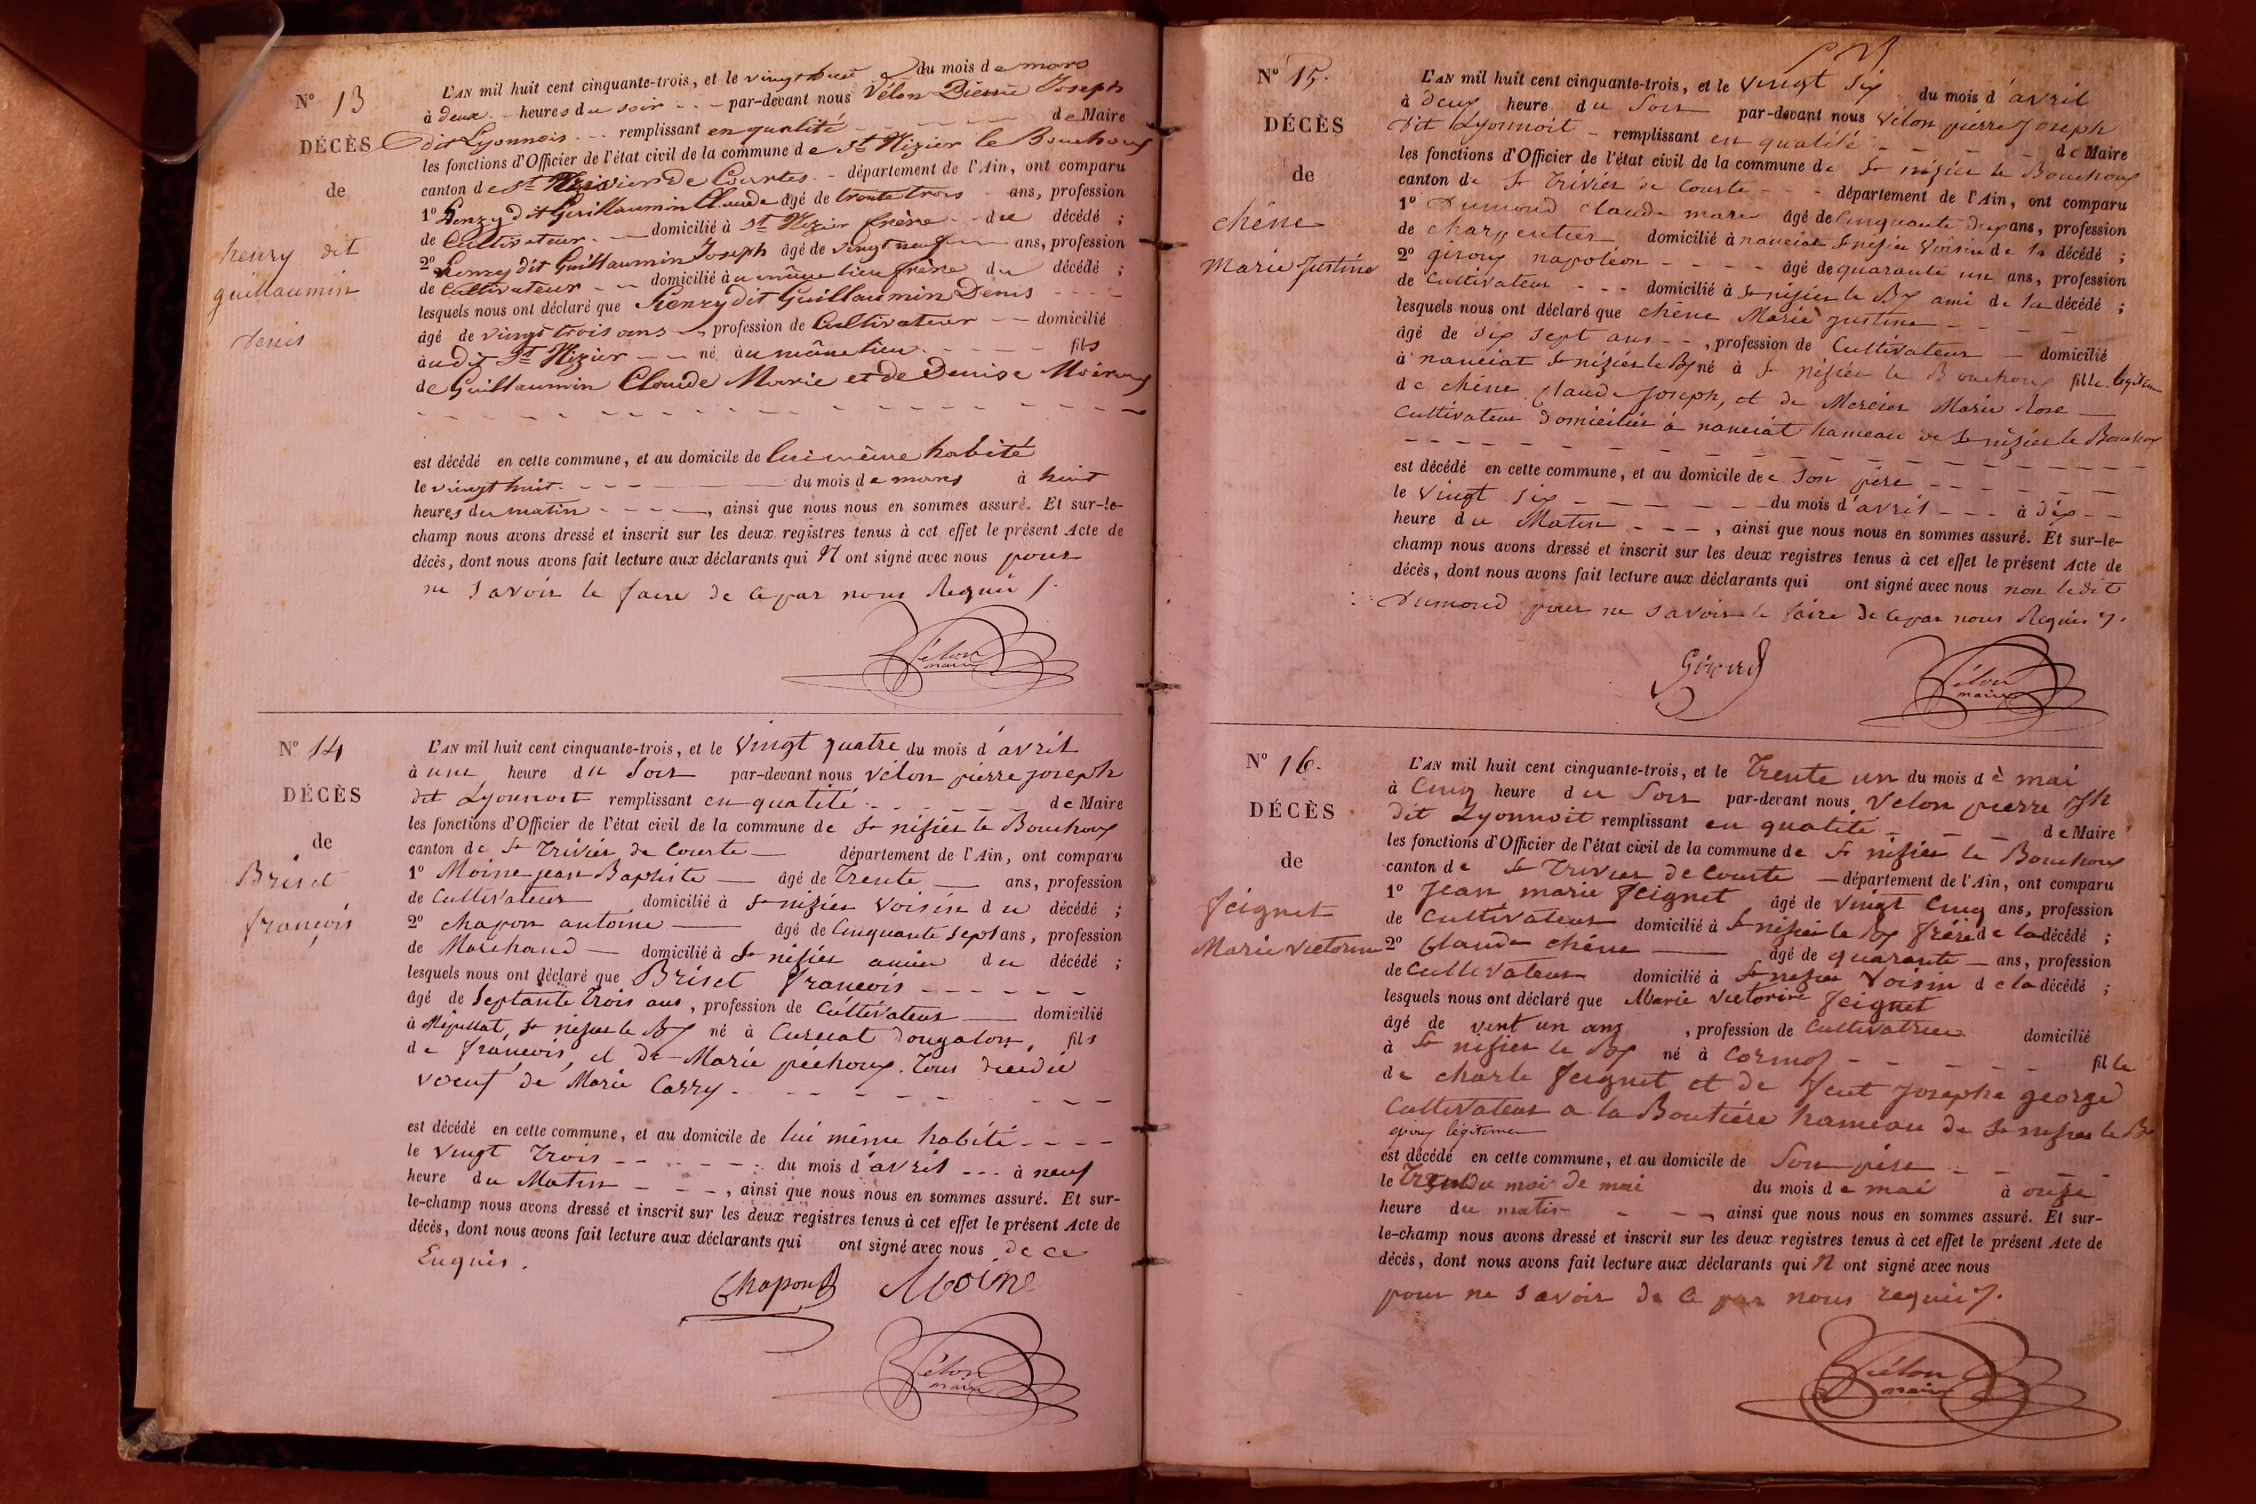 N° 13
DÉCÈS
de
henry dit
guillaumin
Denis
L'AN mil huit cent cinquante-trois, et le vingt huit du mois de mars
à deux heures du soir par-devant nous Vélon Pierre Joseph
dit Lyonnois remplissant en qualité de Maire
les fonctions d'Officier de l'état civil de la commune de St Nizier le Bouchoux
canton de St Trivier de Courtes département de l'Ain, ont comparu
1° henry dit Guillaumin Claude âgé de trente trois ans, profession
de Cultivateur domicilié à St Nizier frère du décédé ;
2° henry dit Guillaumin Joseph âgé de vingt neuf ans, profession
de Cultivateur domicilié à u même lieu frère du décédé ;
lesquels nous ont déclaré que henry dit Guillaumin Denis
âgé de vingt trois ans, profession de Cultivateur domicilié
à u dit St Nizier né àu même lieu fils
de Guillaumin Claude Marie et de Denise Moiroux
est décédé en cette commune, et au domicile de lui même habité
le vingt huit du mois de mars à huit
heures du matin, ainsi que nous nous en sommes assuré. Et sur-le-
champ nous avons dressé et inscrit sur les deux registres tenus à cet effet le présent Acte de
décès, dont nous avons fait lecture aux déclarants qui N ont signé avec nous pour
ne savoir le faire de ce par nous Requis
Vélon
maire
N° 14
DÉCÈS
de
Briset
françois
L'AN mil huit cent cinquante-trois, et le vingt quatre du mois d'avril
à une heure du Soir par-devant nous vélon pierre joseph
dit Lyonnoit remplissant en qualité de Maire
les fonctions d'Officier de l'état civil de la commune de St nisier le Bouchoux
canton de St Trivier de Courte département de l'Ain, ont comparu
1° Moine jean Baptiste âgé de Trente ans, profession
de Cultivateur domicilié à St nisier Voisin du décédé ;
2° chapon antoine âgé de Cinquante Sept ans, profession
de Marchand domicilié à St nisier amie du décédé ;
lesquels nous ont déclaré que Briset françois
âgé de Septante Trois ans, profession de Cultivateur domicilié
à St nisier le Bx né à Curciat Dongalon, fils
de françois, et de Marie péchoux. Tous décédé
veouf de Marie Carry.
est décédé en cette commune, et au domicile de lui même habité
le Vingt Trois du mois d'avril à neuf
heure du Matin, ainsi que nous nous en sommes assuré. Et sur-
le-champ nous avons dressé et inscrit sur les deux registres tenus à cet effet le présent Acte de
décès, dont nous avons fait lecture aux déclarants qui ont signé avec nous de ce
Enquis.
Chapon Moine
Vélon
maire
N° 15.
DÉCÈS
de
chêne
Marie Justine
L'AN mil huit cent cinquante-trois, et le Vingt Six du mois d'avril
à deux heure du Soir par-devant nous Vélon pierre Joseph
dit Lyonnoit remplissant en qualité de Maire
les fonctions d'Officier de l'état civil de la commune de St nisier le Bouchoux
canton de St Trivier de Courte département de l'Ain, ont comparu
1° Dumond claude marie âgé de Cinquante deux ans, profession
de charpentier domicilié à nanciat St nisier Voisin de la décédé ;
2° giroux napoléon âgé de quarante un ans, profession
de Cultivateur domicilié à St nisier le Bx ami de la décédé ;
lesquels nous ont déclaré que chêne Marie Justine
âgé de dix Sept ans, profession de Cultivateur domicilié
à nanciat St nisier le Bx né à St nisier le Bouchoux fille légitime
de chêne Claude Joseph, et de Mercier Marie Rose
Cultivateur domicilier à nanciat hameau de St nisier le Bouchoux
est décédé en cette commune, et au domicile de e Son père
le Vingt Six du mois d'avril à dix
heure du Matin, ainsi que nous nous en sommes assuré. Et sur-le-
champ nous avons dressé et inscrit sur les deux registres tenus à cet effet le présent Acte de
décès, dont nous avons fait lecture aux déclarants qui ont signé avec nous non ledit
Dumond pour ne savoir le faire de ce par nous Requis
Vélon
maire
N° 16.
DÉCÈS
de
feignet
Marie Victorine
L'AN mil huit cent cinquante-trois, et le Trente un du mois d e mai
à Cinq heure du Soir par-devant nous Vélon pierre jph
dit Lyonnoit remplissant en qualité de Maire
les fonctions d'Officier de l'état civil de la commune de St nisier le Bouchoux
canton de St Trivier de Courte département de l'Ain, ont comparu
1° Jean marie feignet âgé de vingt Cinq ans, profession
de Cultivateur domicilié à St nisier le Bx frère de la décédé ;
2° Claude chêne âgé de quarante ans, profession
de Cultivateur domicilié à St nisier Voisin de la décédé ;
lesquels nous ont déclaré que Marie Victorine feignet
âgé de vent un ans, profession de Cultivatrice domicilié
à St nisier le Bx né à Cormoz fille
de charle feignet et de feut Josephe george
Cultivateur a la Boutière hameau de St nisier le Bx
epoux légitimes
est décédé en cette commune, et au domicile de Son père
le du moi de mai du mois de mai à onze
heure du matin, ainsi que nous nous en sommes assuré. Et sur-
le-champ nous avons dressé et inscrit sur les deux registres tenus à cet effet le présent Acte de
décès, dont nous avons fait lecture aux déclarants qui N ont signé avec nous
pour ne savoir de ce par nous requis
Vélon
maire